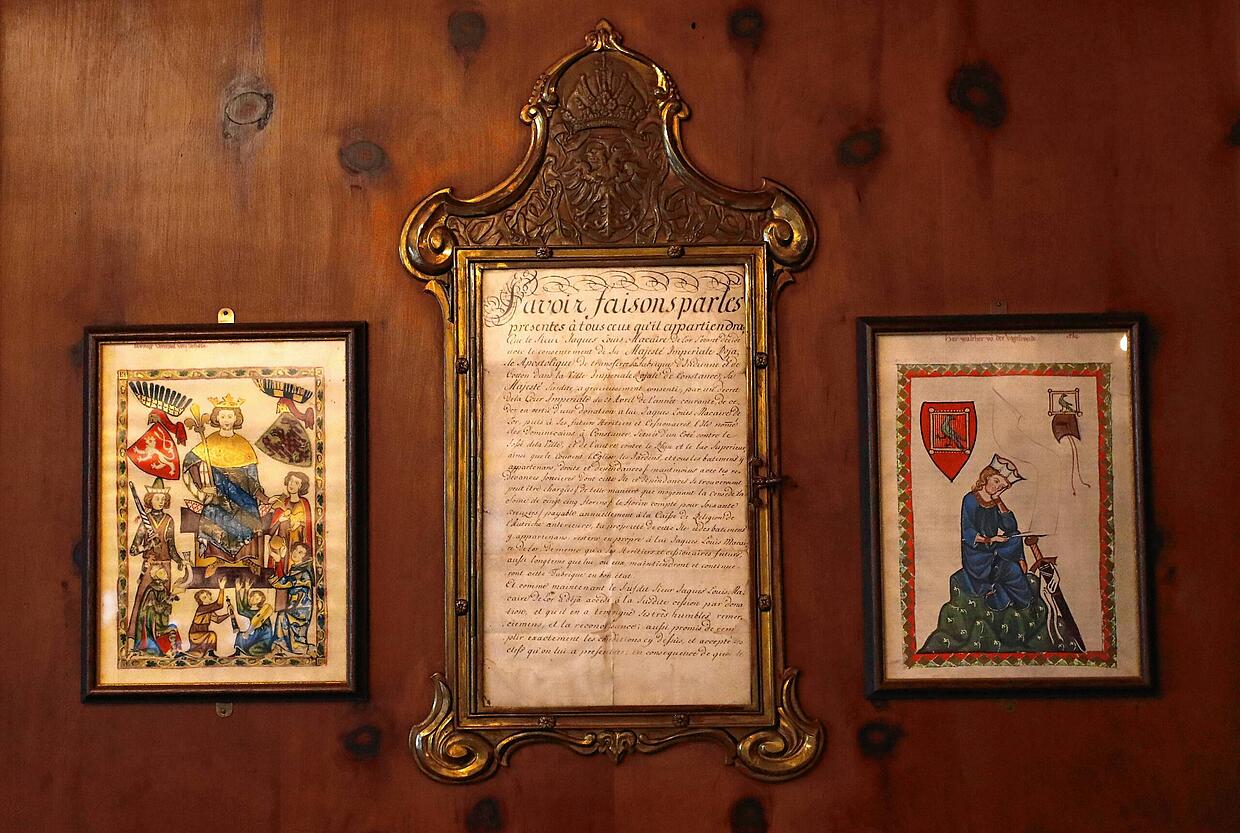 Savoir faisons par les
presentes à tous ceux qu'il appartiendra,
Que le Sieur Jaques Louis Macaire de Lor
nous le consentement de Sa Majesté Imperiale Roya,
le Apostolique de transferer sa fabrique d'Indienne et de
Cotton dans la Ville Imperiale Roiale de Constance, Sa
Majesté Susdite a gracieusement consenti, par un Decret
de la Cour Imperiale du Avril de l'année courante de ce,
der en vertu d'une donation a lui Jaques Louis Macaire de
Lor, puis à Ses futurs Heritiers et Cessionaires l'Isle nommé
des Dominicains à Constance, Scitué d'un Coté contre le
de la Ville, et de l'autre contre le Rhin et le Lac Superieur
ainsi que le Couvent, l'Eglise, les Jardins, et tous les batimens y
appartenans, droits et dependances, neanmoins avec les re,
devances foncieres dont cette Isle et dependances se trouveront
peut être chargées de telle maniere que moyenant la
de vingt cinq florins, le florin compté pour Soixante
creuzers, payable annuellement à la Caisse de Religion de
l'Autriche anterieure, la proprieté de cette Isle et des batimens
y appartenans, restera en propre à lui Jaques Louis Macai,
re de Lor, De meme qu'a Ses Heritiers et cessionaires futurs
aussi longtems que lui, ou eux maintiendront et continue,
ront cette Fabrique en bon état.
Et comme maintenant le Susdit Sieur Jaques Louis Ma,
caire de Lor a deja accedé à la Susdite cession par dona,
tion, et qu'il en a temoigné ses très humbles remer,
ciemens, et la reconnoissance; aussi promis de rem,
plir exactement les conditions cy dessus, et accepté
qu'on lui a presentée; En consequence de quoi le
Her walther vo der Vogelweide